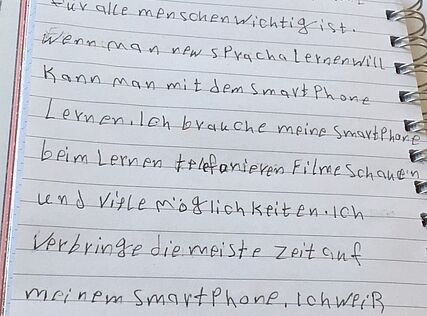 für alle menschen wichtig ist.
Wenn man new spracha lernen will
Kann man mit dem smartphone
Lernen. Ich brauche meine smartphone
beim Lernen telefonieren Filme schauen
und viele möglichkeiten. Ich
verbringe die meiste zeit auf
meinem smartphone. Ich weiß